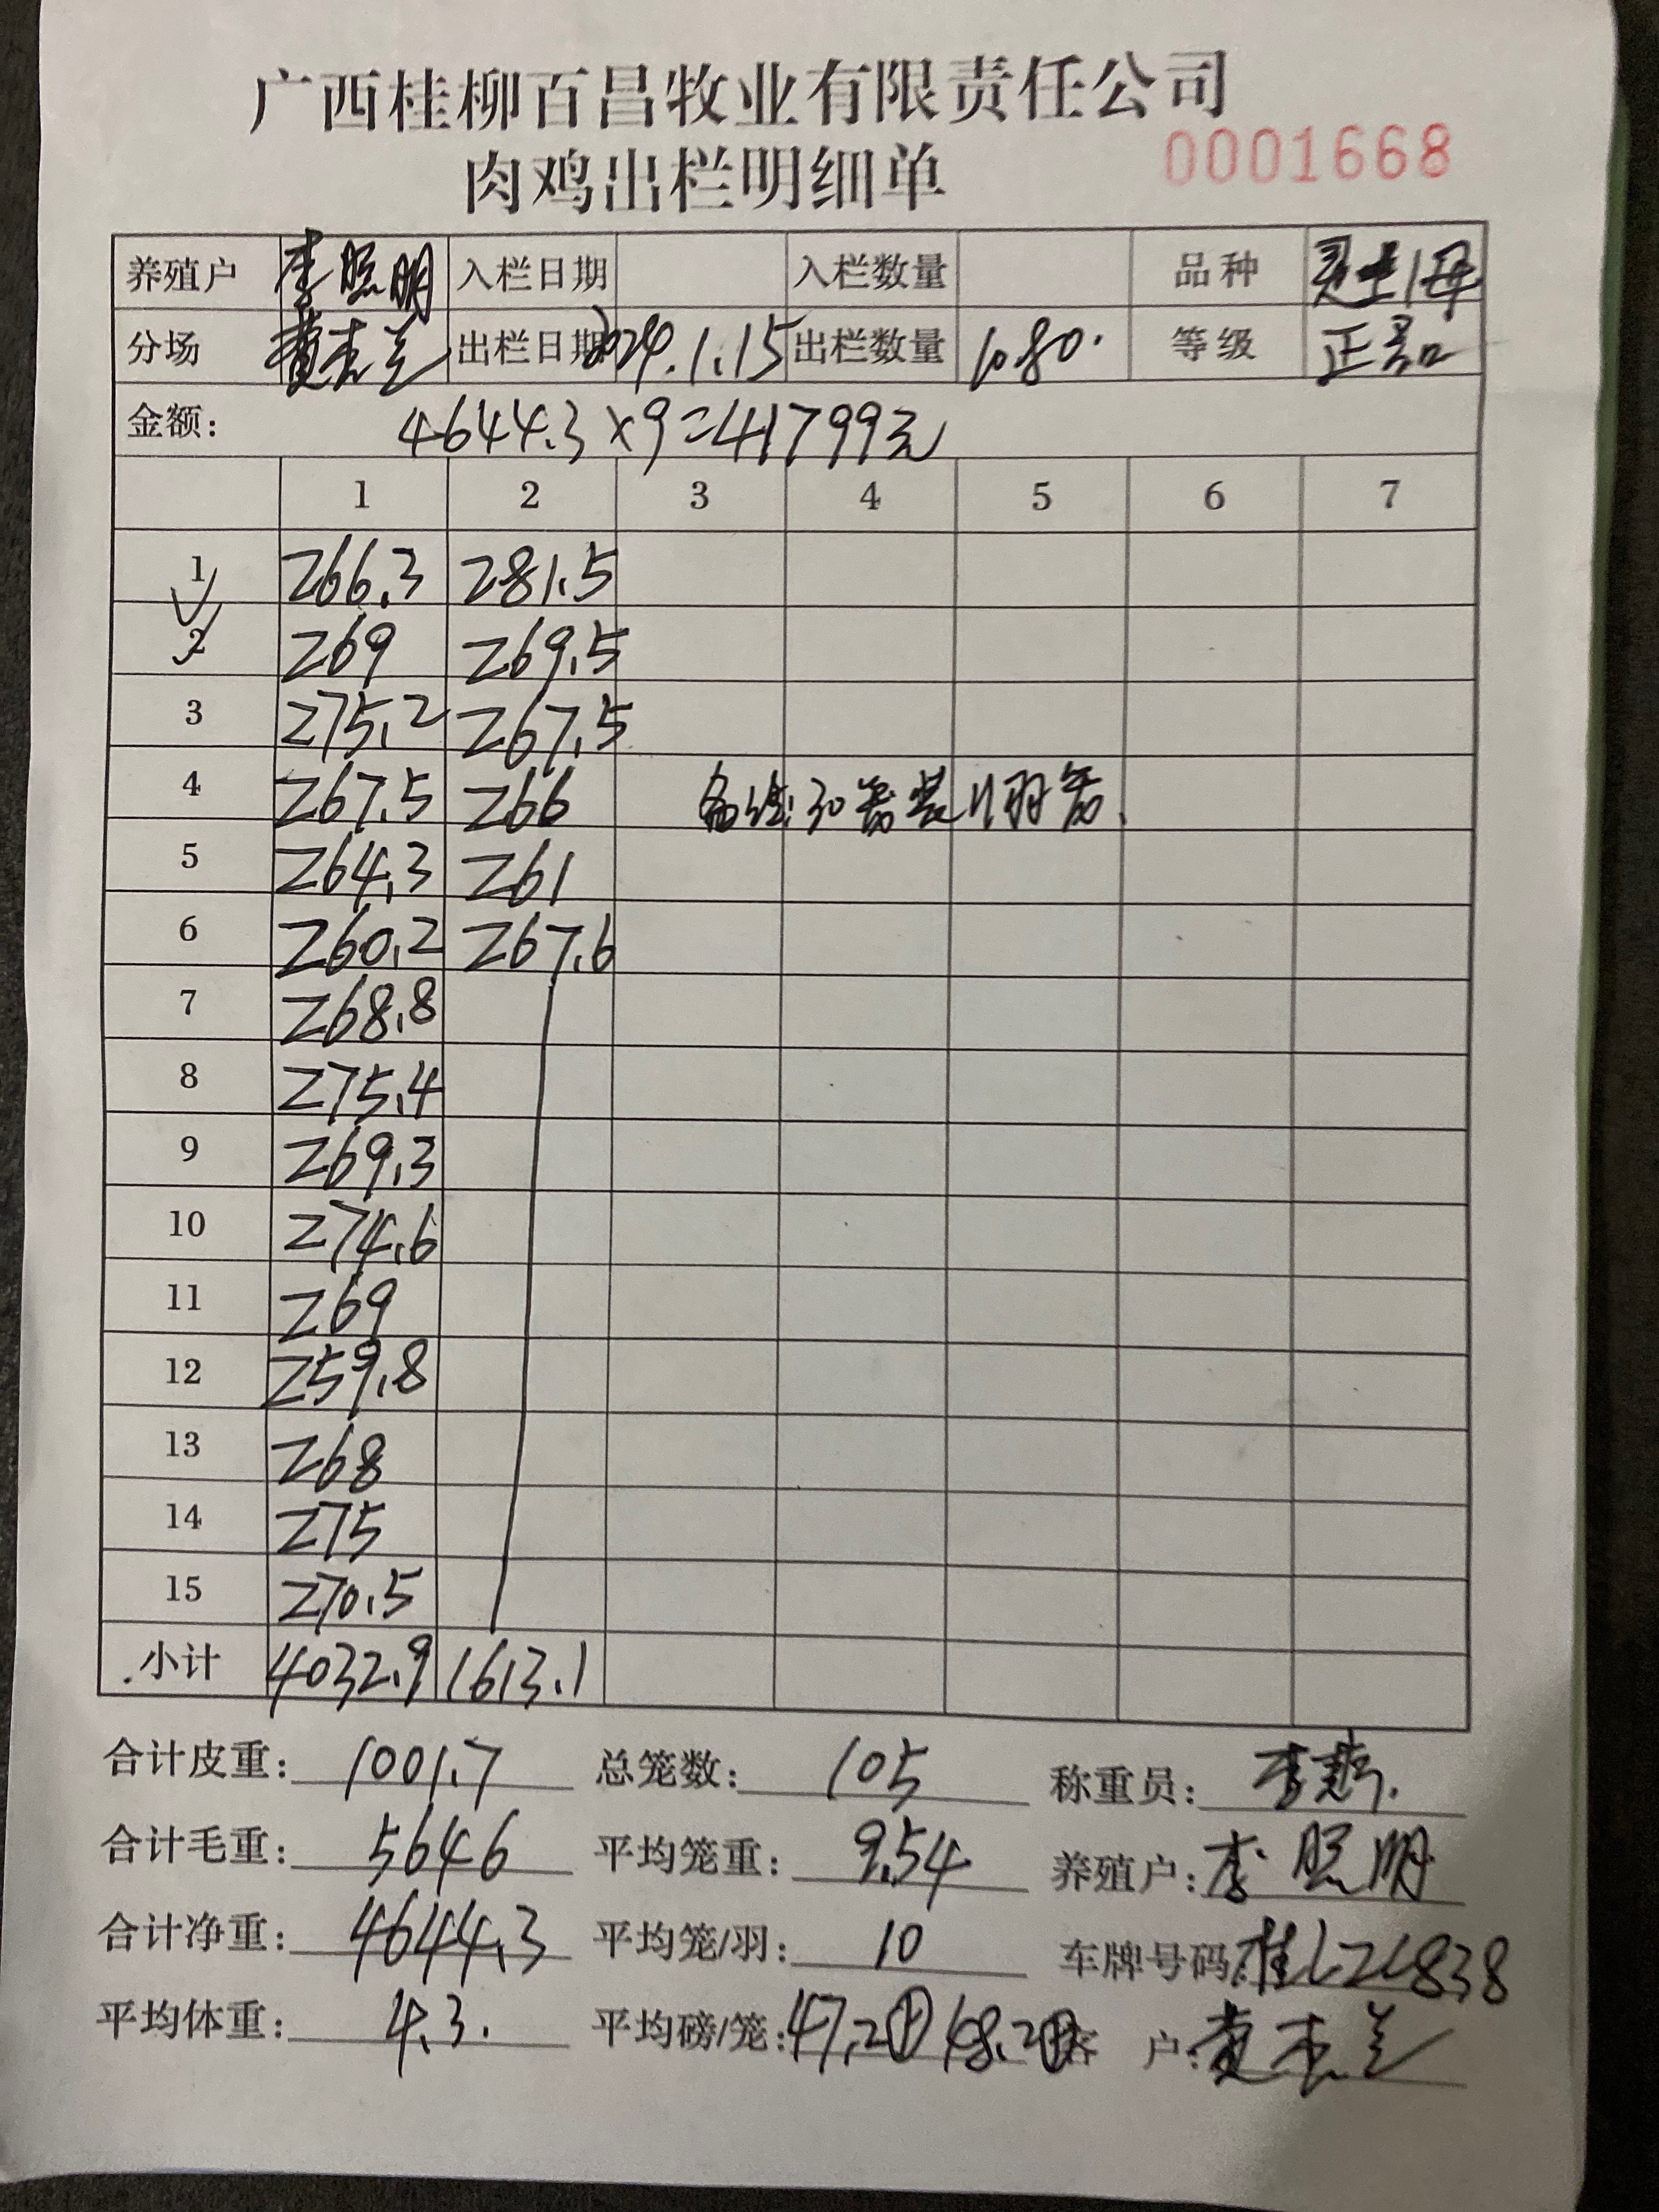 广西桂柳百昌牧业有限责任公司
肉鸡出栏明细单 0001668
养殖户 李照明 入栏日期 入栏数量 品种 灵土1母
分场 黄杰兰 出栏日期 2024.1.15 出栏数量 1080. 等级 正品
金额: 4644.3×9=41799元
1 2 3 4 5 6 7
1 266.3 281.5
2 269 269.5
3 275.2 267.5
4 267.5 266 备注:30笼装11羽笼.
5 264.3 261
6 260.2 267.6
7 268.8
8 275.4
9 269.3
10 274.6
11 269
12 259.8
13 268
14 275
15 270.5
小计 4032.9 1613.1
合计皮重: 1001.7 总笼数: 105 称重员: 李
合计毛重: 5646 平均笼重: 9.54 养殖户: 李照明
合计净重: 4644.3 平均笼/羽: 10 车牌号码: 桂L2L838
平均体重: 4.3. 平均磅/笼: 47.2 48.2 客户: 黄杰兰